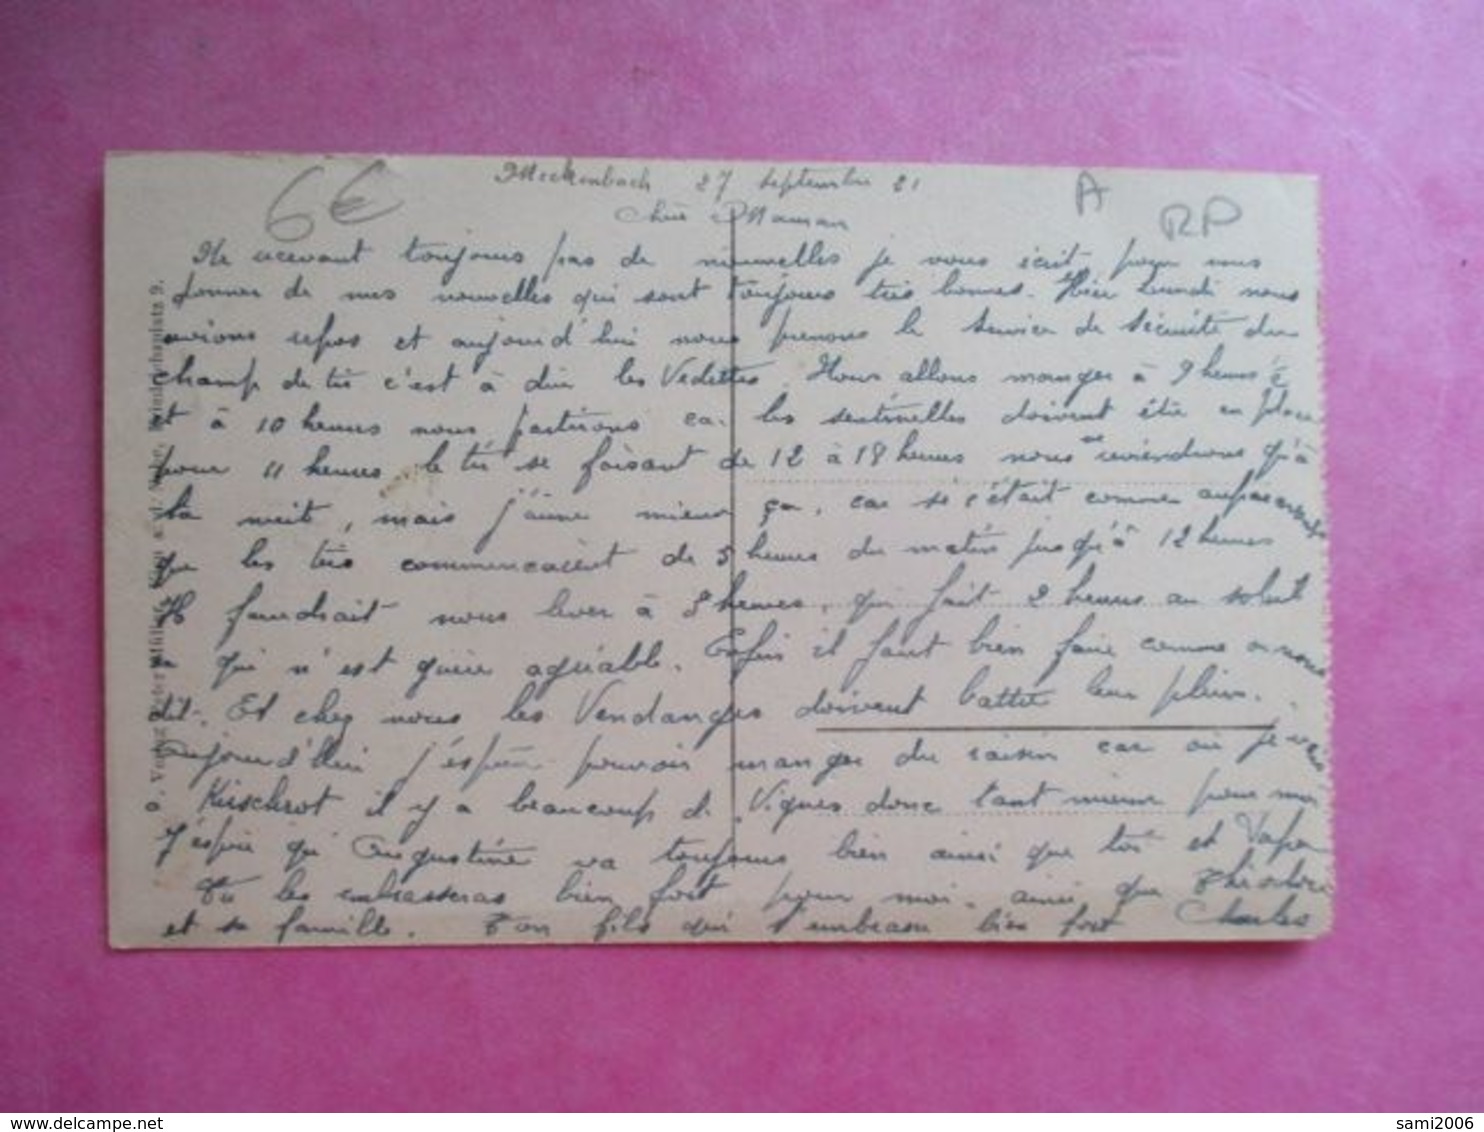 6€
Meckenbach 27 septembre 21
A
RP
Chère Maman
Ne recevant toujours pas de nouvelles je vous écrit pour vous
donner de mes nouvelles qui sont toujours très bonnes. Hier Lundi nous
avions repos et aujourd'hui nous prenons le service de sécurité du
champ de tir c'est à dire les Vedettes. Nous allons manger à 9 heures
et à 10 heures nous partirons car les sentinelles doivent être en place
pour 11 heures le tir se faisant de 12 à 18 heures nous ne reviendrons qu'à
la nuit, mais j'aime mieux ça, car si c'était comme auparavant
que les tirs commençaient de 5 heures du matin jusqu'à 12 heures
Il faudrait nous lever à 2 heures, qui fait 2 heures au soleil
qui n'est guère agréable. Enfin il faut bien faire comme on nous
dit. Et chez nous les Vendanges doivent battre leur plein.
Aujourd'hui j'espère pouvoir manger du raisin car où je vais
Kirschrot il y a beaucoup de Vignes donc tant mieux pour moi
J'espère qu'Augustine va toujours bien ainsi que toi et Papa
Tu les embrasseras bien fort pour moi, ainsi que Théodore
et sa famille. Ton fils qui t'embrasse bien fort Charles
sami2006
delcampe.net